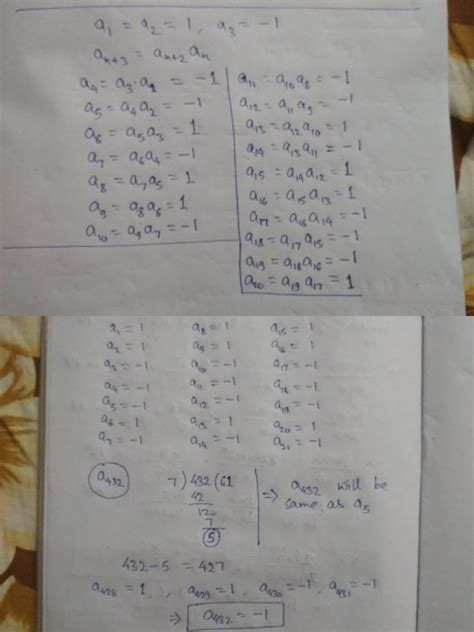 a₁ = a₂ = 1, a₃ = -1
aₙ₊₃ = aₙ₊₂ aₙ
a₄ = a₃·a₁ = -1
a₅ = a₄a₂ = -1
a₆ = a₅a₃ = 1
a₇ = a₆a₄ = -1
a₈ = a₇a₅ = 1
a₉ = a₈a₆ = 1
a₁₀ = a₉a₇ = -1
a₁₁ = a₁₀a₈ = -1
a₁₂ = a₁₁a₉ = -1
a₁₃ = a₁₂a₁₀ = 1
a₁₄ = a₁₃a₁₁ = -1
a₁₅ = a₁₄a₁₂ = 1
a₁₆ = a₁₅a₁₃ = 1
a₁₇ = a₁₆a₁₄ = -1
a₁₈ = a₁₇a₁₅ = -1
a₁₉ = a₁₈a₁₆ = -1
a₂₀ = a₁₉a₁₇ = 1
a₁ = 1 a₈ = 1 a₁₅ = 1
a₂ = 1 a₉ = 1 a₁₆ = 1
a₃ = -1 a₁₀ = -1 a₁₇ = -1
a₄ = -1 a₁₁ = -1 a₁₈ = -1
a₅ = -1 a₁₂ = -1 a₁₉ = -1
a₆ = 1 a₁₃ = 1 a₂₀ = 1
a₇ = -1 a₁₄ = -1 a₂₁ = -1
a₄₃₂ 7) 432 (61
42
12
7
5
⇒ a₄₃₂ will be
same as a₅
432-5 = 427
a₄₂₈ = 1, a₄₂₉ = 1, a₄₃₀ = -1, a₄₃₁ = -1
⇒ a₄₃₂ = -1